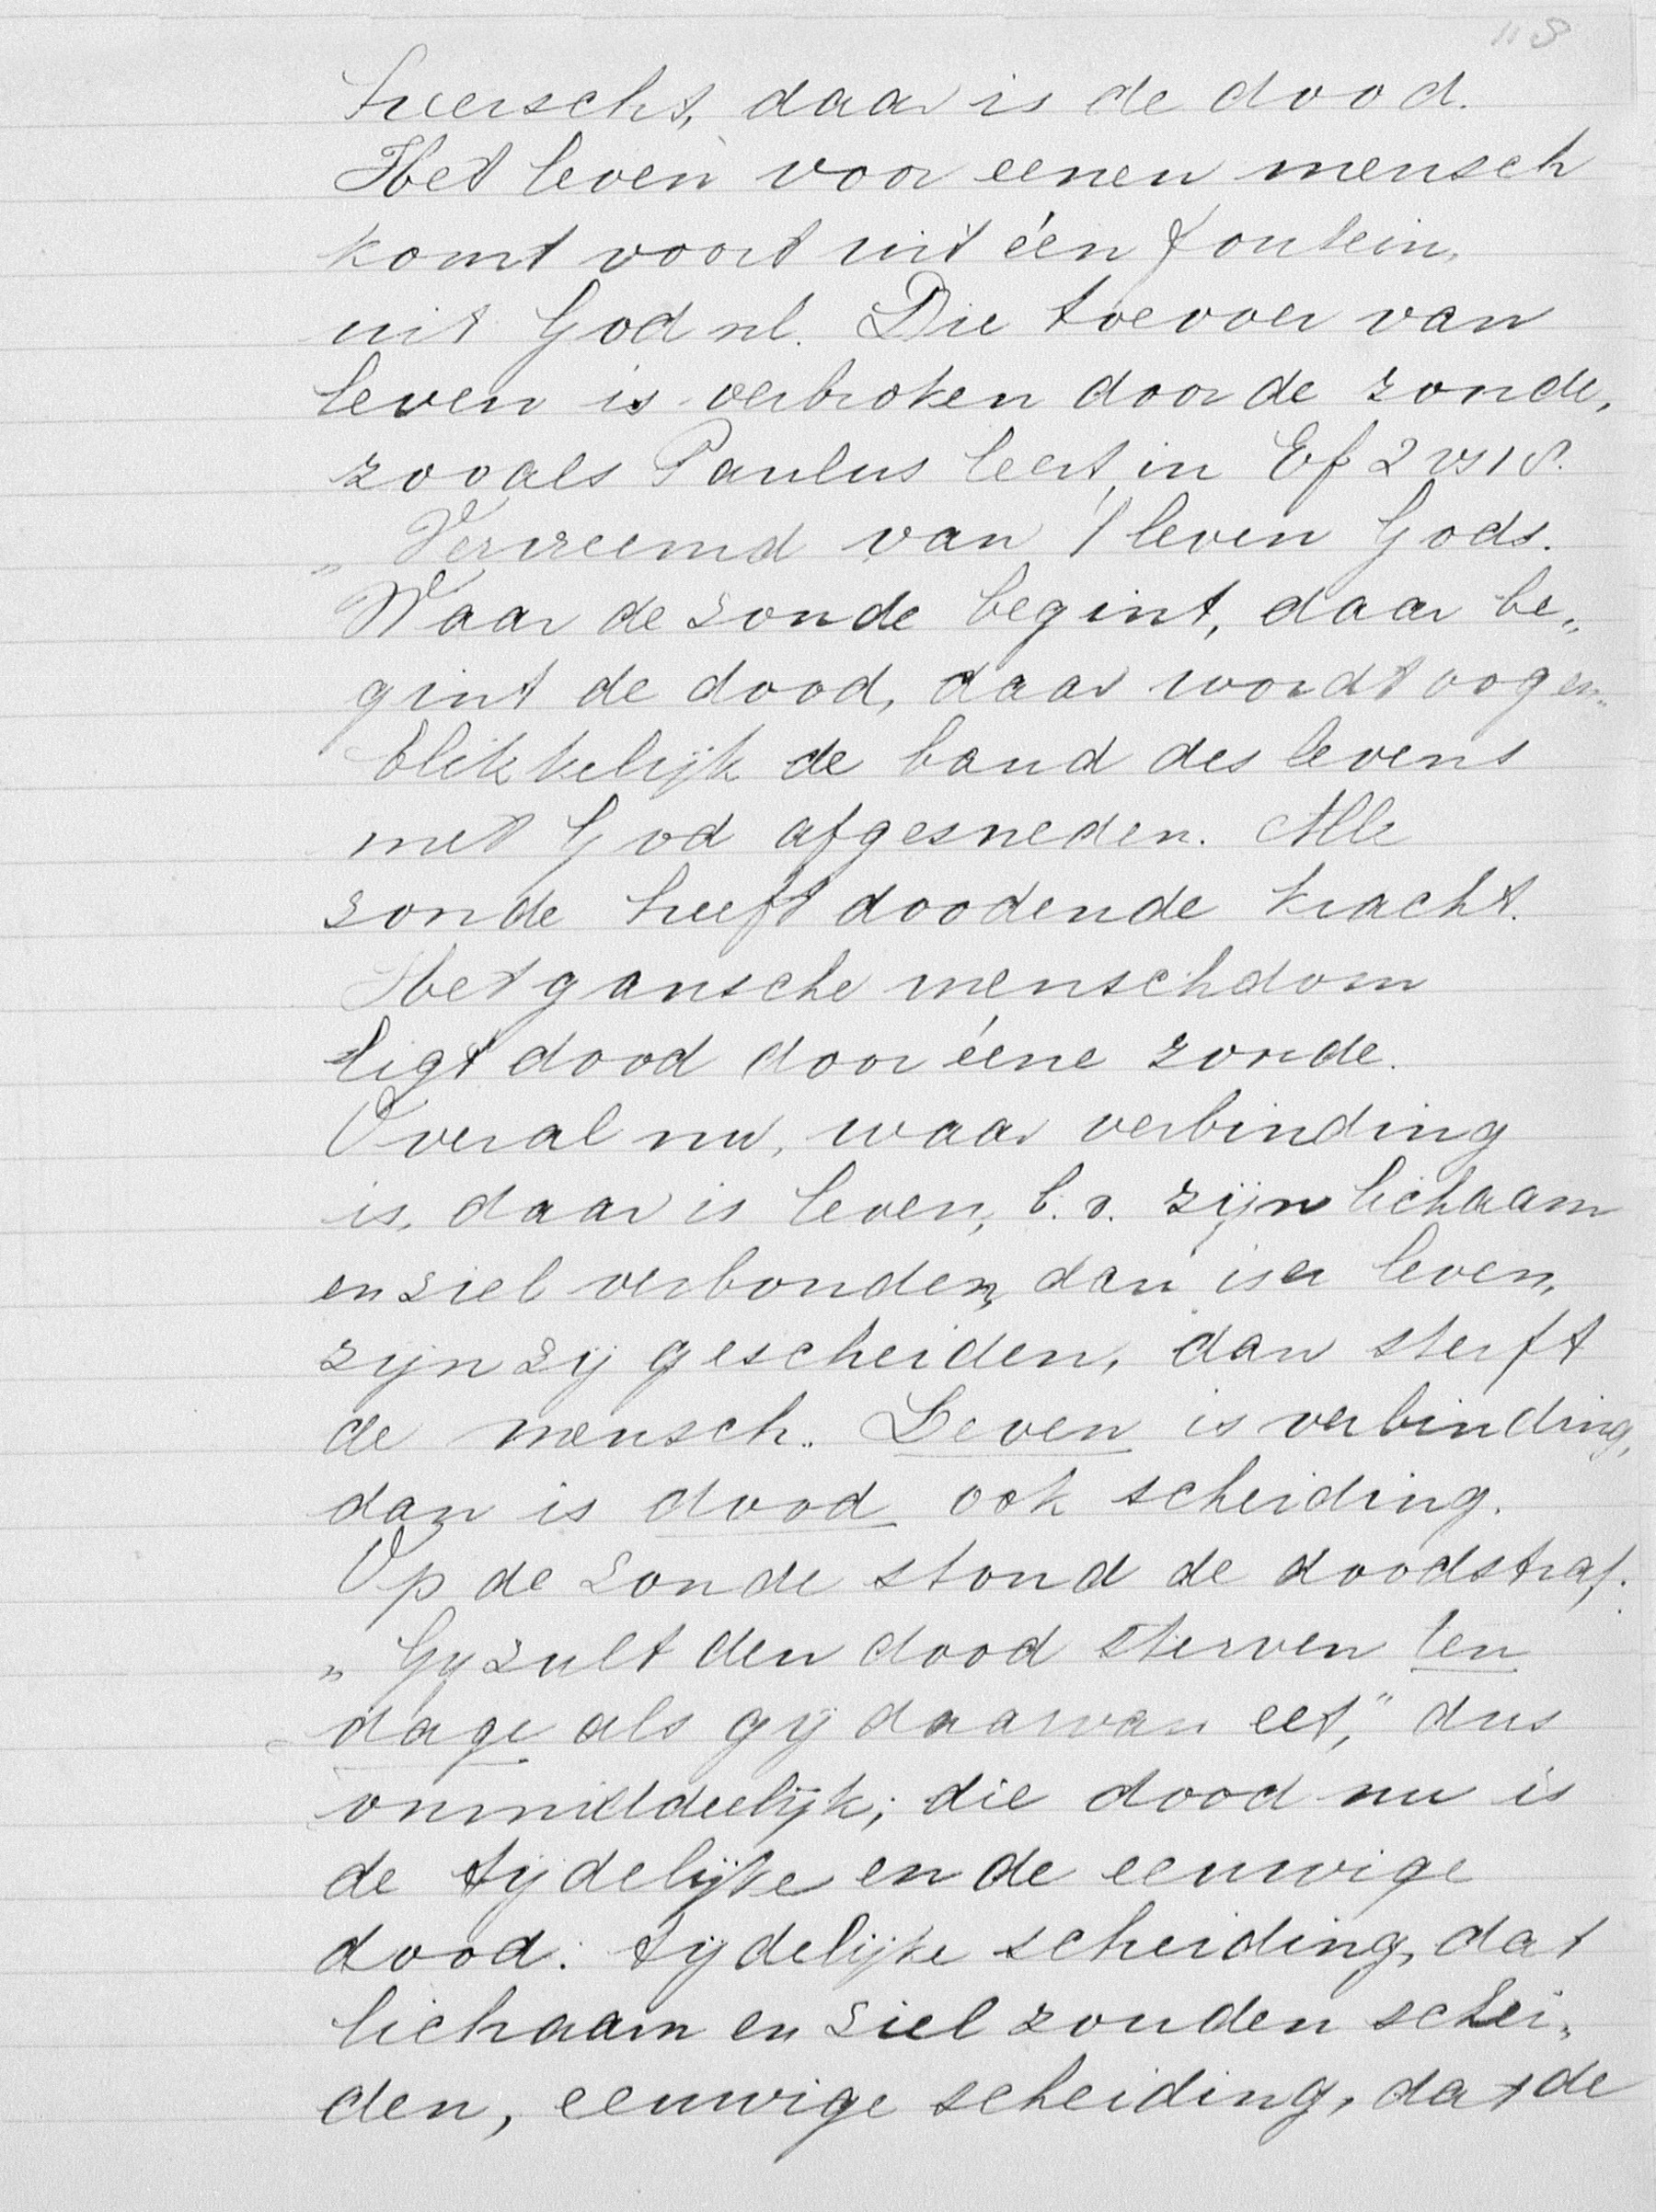 118
heerscht, daar is de dood.
Het leven voor eenen mensch
komt voort uit één fontein,
uit God nl. Die toevoer van
leven is verbroken door de zonde,
zooals Paulus leert in Ef 2 vs 18.
„Vervreemd van 't leven Gods.
Waar de zonde begint, daar be„
gint de dood, daar wordt oogen„
blikkelijk de band des levens
met God afgesneden. Alle
zonde heeft doodende kracht.
Het gansche menschdom
ligt dood door ééne zonde.
Overal nu, waar verbinding
is, daar is leven, b.v. zijn lichaam
en ziel verbonden, dan is er leven,
zijn zij gescheiden, dan sterft
de mensch. Leven is verbinding,
dan is dood ook scheiding.
Op de zonde stond de doodstraf.
„Gij zult den dood sterven ten
dage als gij daarvan eet," dus
onmiddelijk; die dood nu is
de tijdelijke en de eeuwige
dood: tijdelijke scheiding, dat
lichaam en ziel zouden schei„
den, eeuwige scheiding, dat de